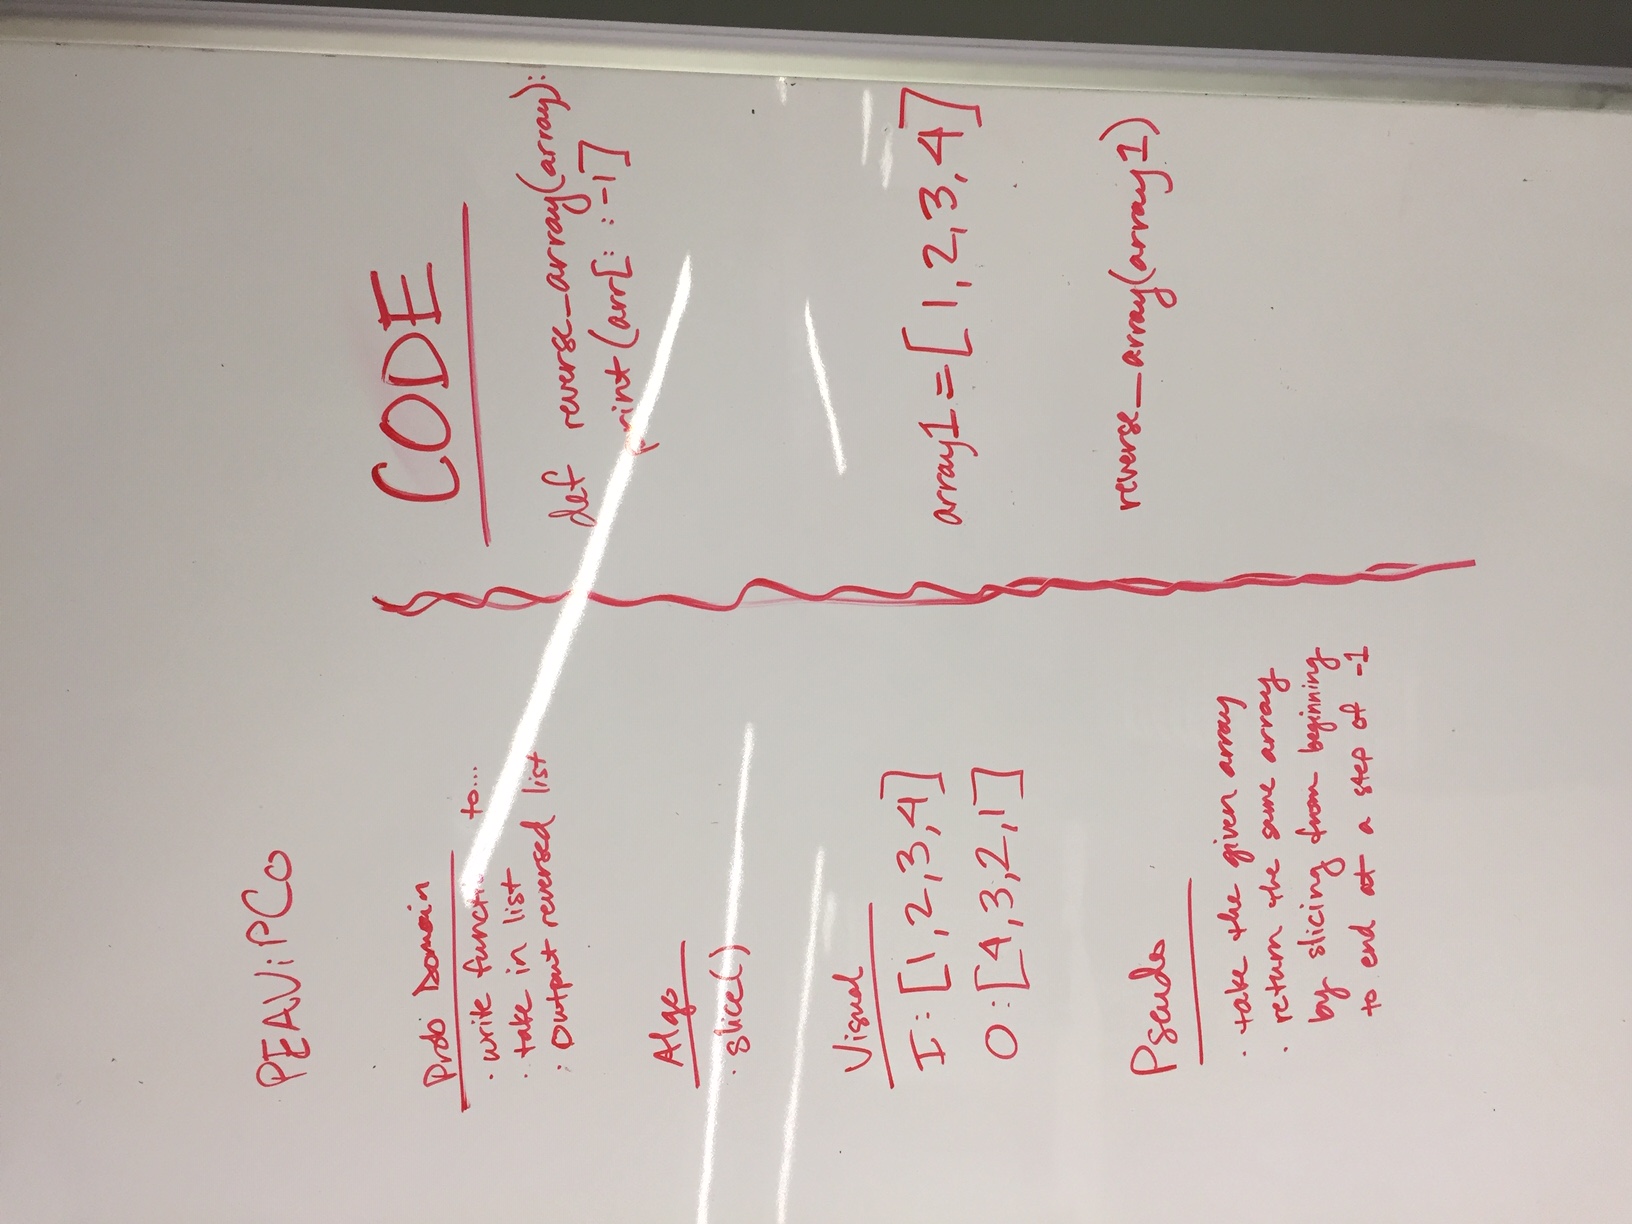 PEAViPCo
Prob Domain
· write function to...
· take in list
· Output reversed list
Algo
· slice()
Visual
I: [1,2,3,4]
O: [4,3,2,1]
Pseudo
· take the given array
· return the same array
by slicing from beginning
to end at a step of -1
CODE
def reverse_array(array):
print(arr[: :-1]
array1 = [1,2,3,4]
reverse_array(array1)